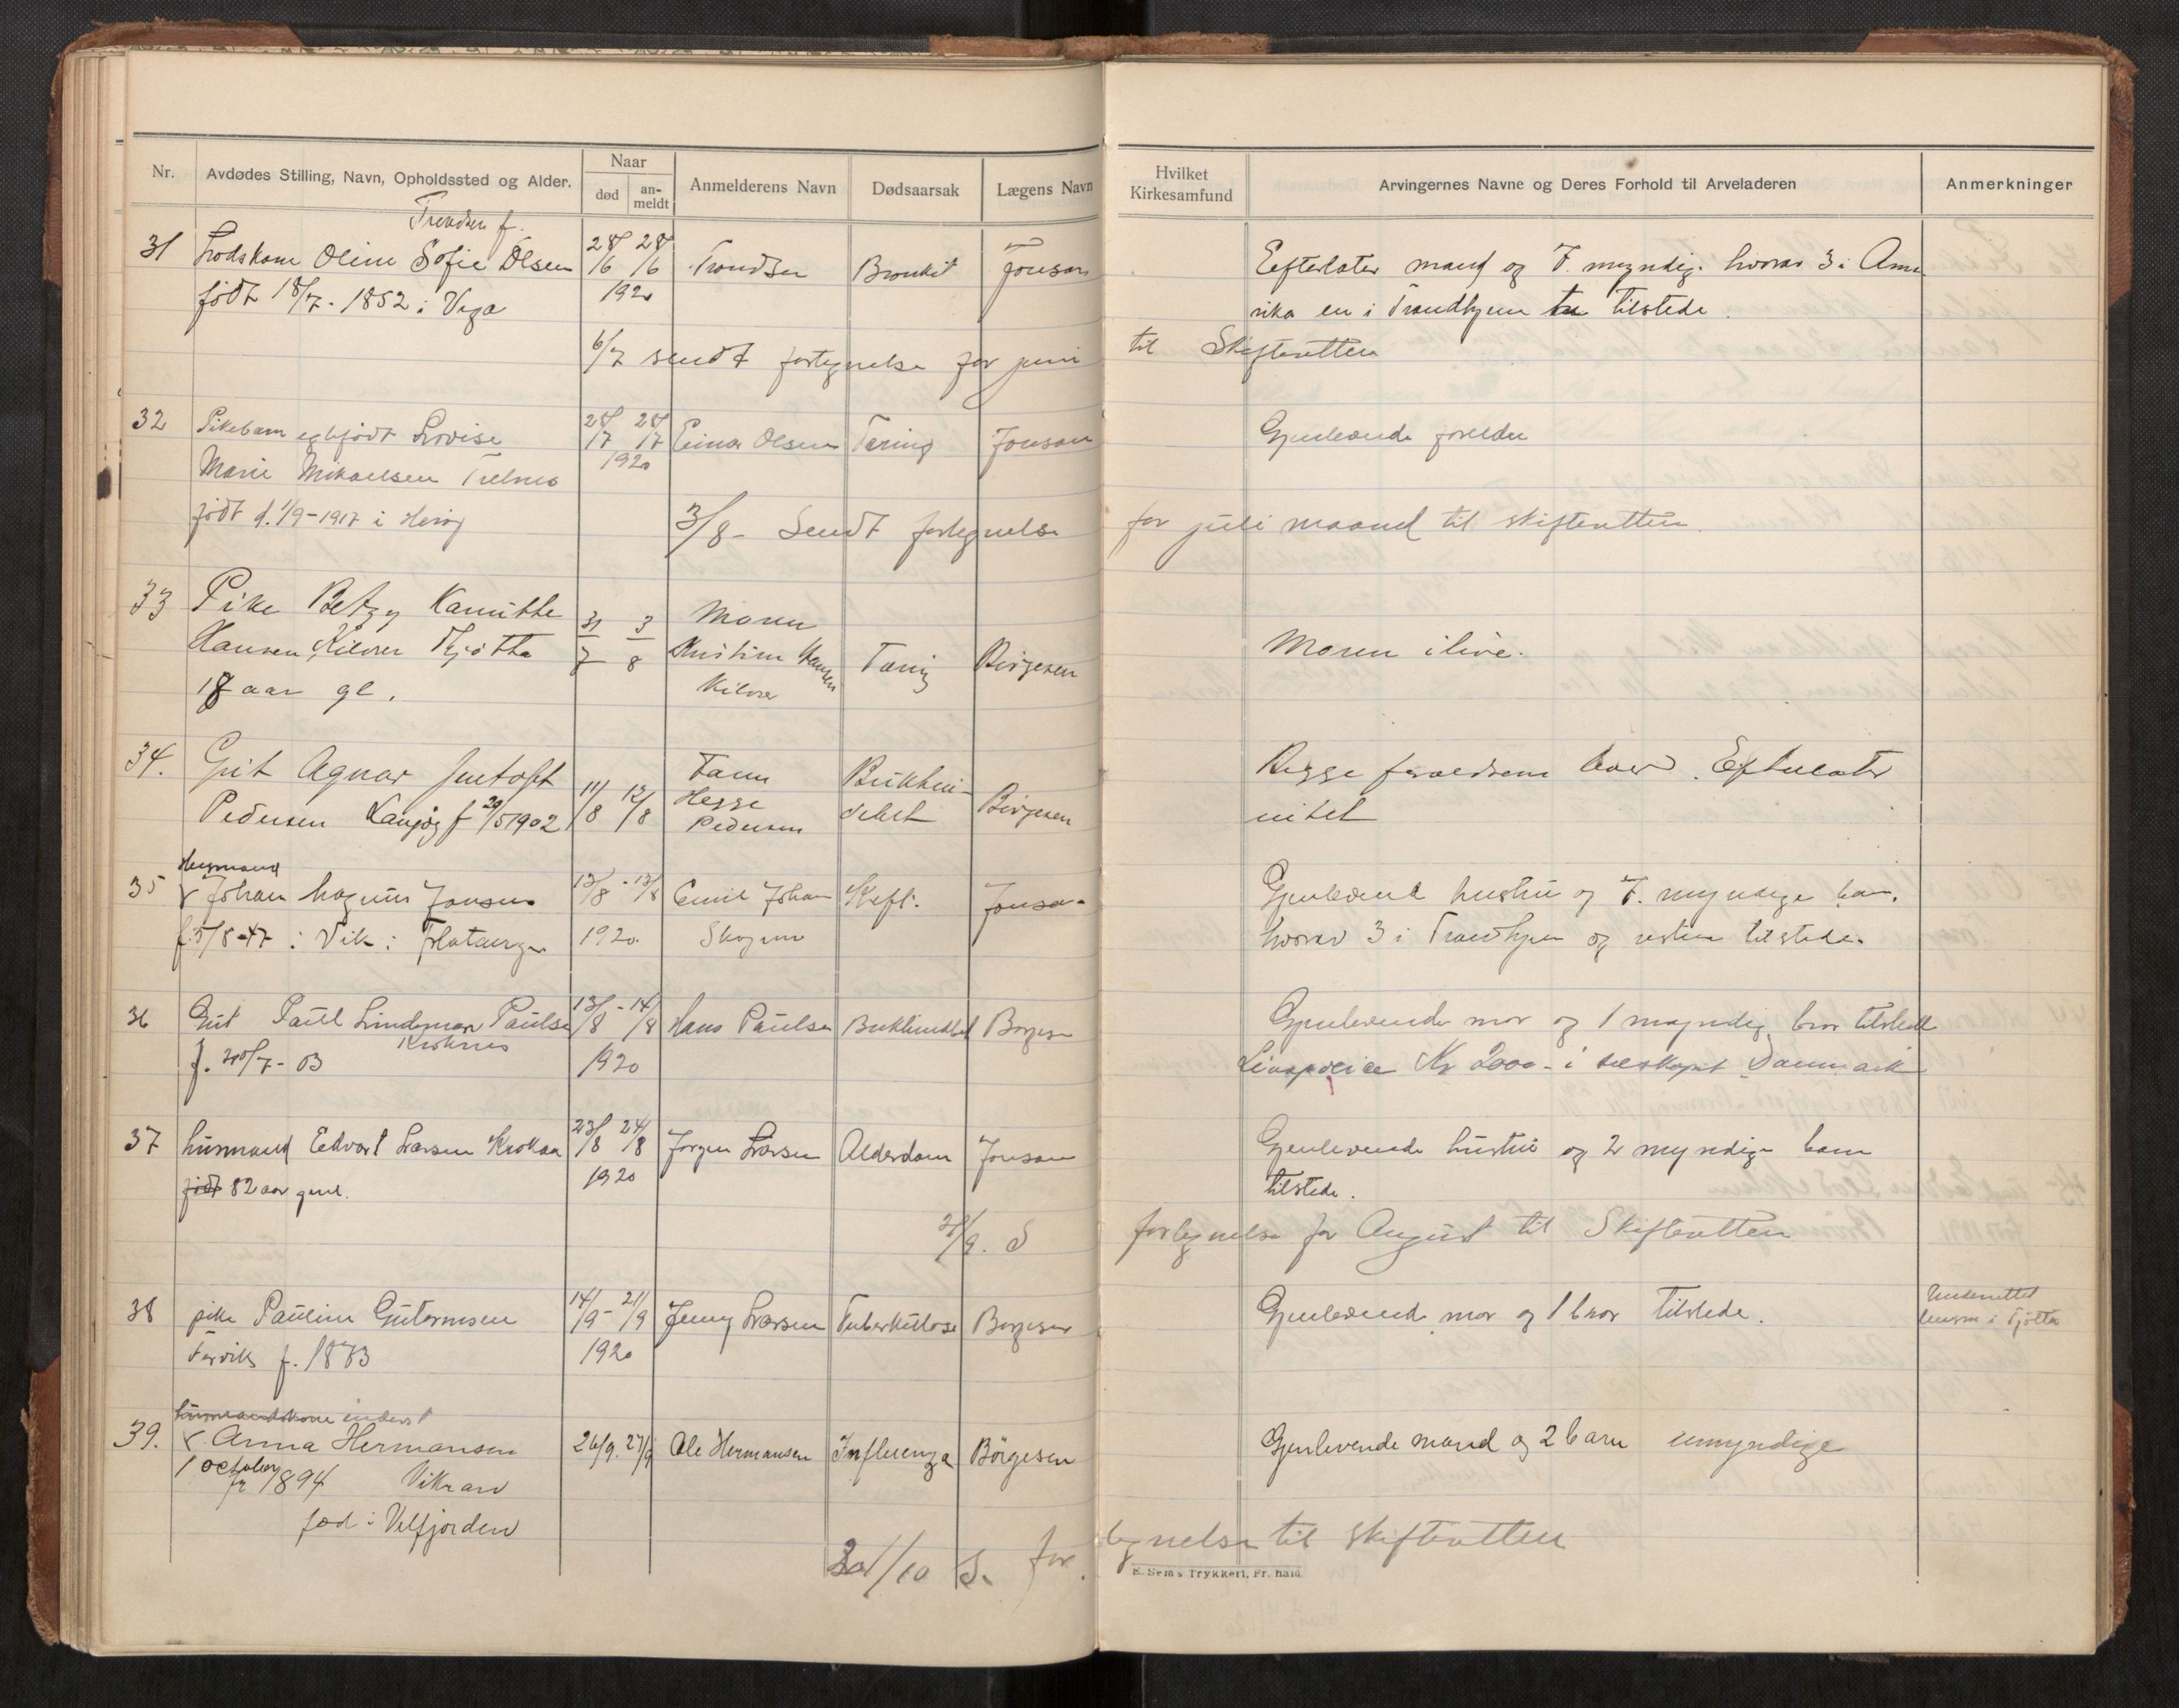 Nr.
Avdødes Stilling, Navn, Opholdssted og Alder.
Naar
død
an-
meldt
Anmelderens Navn
Dødsaarsak
Lægens Navn
Hvilket
Kirkesamfund
Arvingernes Navne og Deres Forhold til Arveladeren
Anmerkninger
Trondsen f.
31 Lodskone Oline Sofie Olsen 28/6 28/6 Trondsen Bronkit Jonson Eefterlater mand og 7. myndig. hvorav 3 i Ame
født 18/7. 1852 i Vega 1920 rika en i Trondhjem tre tilstede.
6/7 sendt fortegnelse for juni til Skifteretten
32 Pikebarn egtefødt Lovise 28/7 28/7 Einar Olsen Tæring Jonson Gjenlevende forelder
Marie Mikaelsen 1920
født d. 1/9-1917 i Herøy
3/8 - Sendt fortegnelse for juli maaned til skifteretten.
33 Pike Betzy Kamitte 31/7 3/8 Moren
Hansen, Kilvær Tjøtta Kristine Hansen Tæring Børgesen Moren ilive.
18 aar gl. Kilvær
34. Gut Agnar Jentoft Faren Bukhin- Begge foreldrene lever. Efterlater
Pedersen f 20/5 1902 11/8 12/8 Hegge delset Børgesen intet
Pedersen
Husmand
35 Johan Magnus Jonsen 13/8 - 13/8 Emil Johan Kreft. Jonson Gjenlevend hustru og 7. myndige barn.
f. 5/8-47 i Vik i Flatanger 1920. Skogmo hvorav 3 i Trondhjem og resten tilstede.
36 Gut Paul Lindeman Paulsen 13/8 - 14/8 Hans Paulsen Bukhindbet Børgesen Gjenlevende mor og 1 myndig bror tilstede
Kroknes
f. 20/7 - 03 1920 Livspolice Kr 2000 - i selskapet Danmark
37 husmand Edvart Larsen Krokaa 23/8 24/8 Jørgen Larsen Alderdom Jonson Gjenlevende hustru og 2 myndige barn
født 82 aar gml. 1920 tilstede.
2/9. S fortegnelse for August til Skifteretten
38 pike Pauline Gutormsen 14/9 - 21/9 Jenny Larsen Tuberkulose Børgesen Gjenlevend mor og 1 bror tilstede. Underrettet
lensm i Tjøtta
Forvik f. 1883 1920
husmandskone inderst
39. Anna Hermansen 26/9. 27/9 Ole Hermansen Influenza Børgesen Gjenlevende mand og 2 barn umyndige
1 october 1894 Vikran
fød i Velfjorden
20/10 S. for tegnelse til skifteretten
E. Sem's Trykkeri, Fr. hald